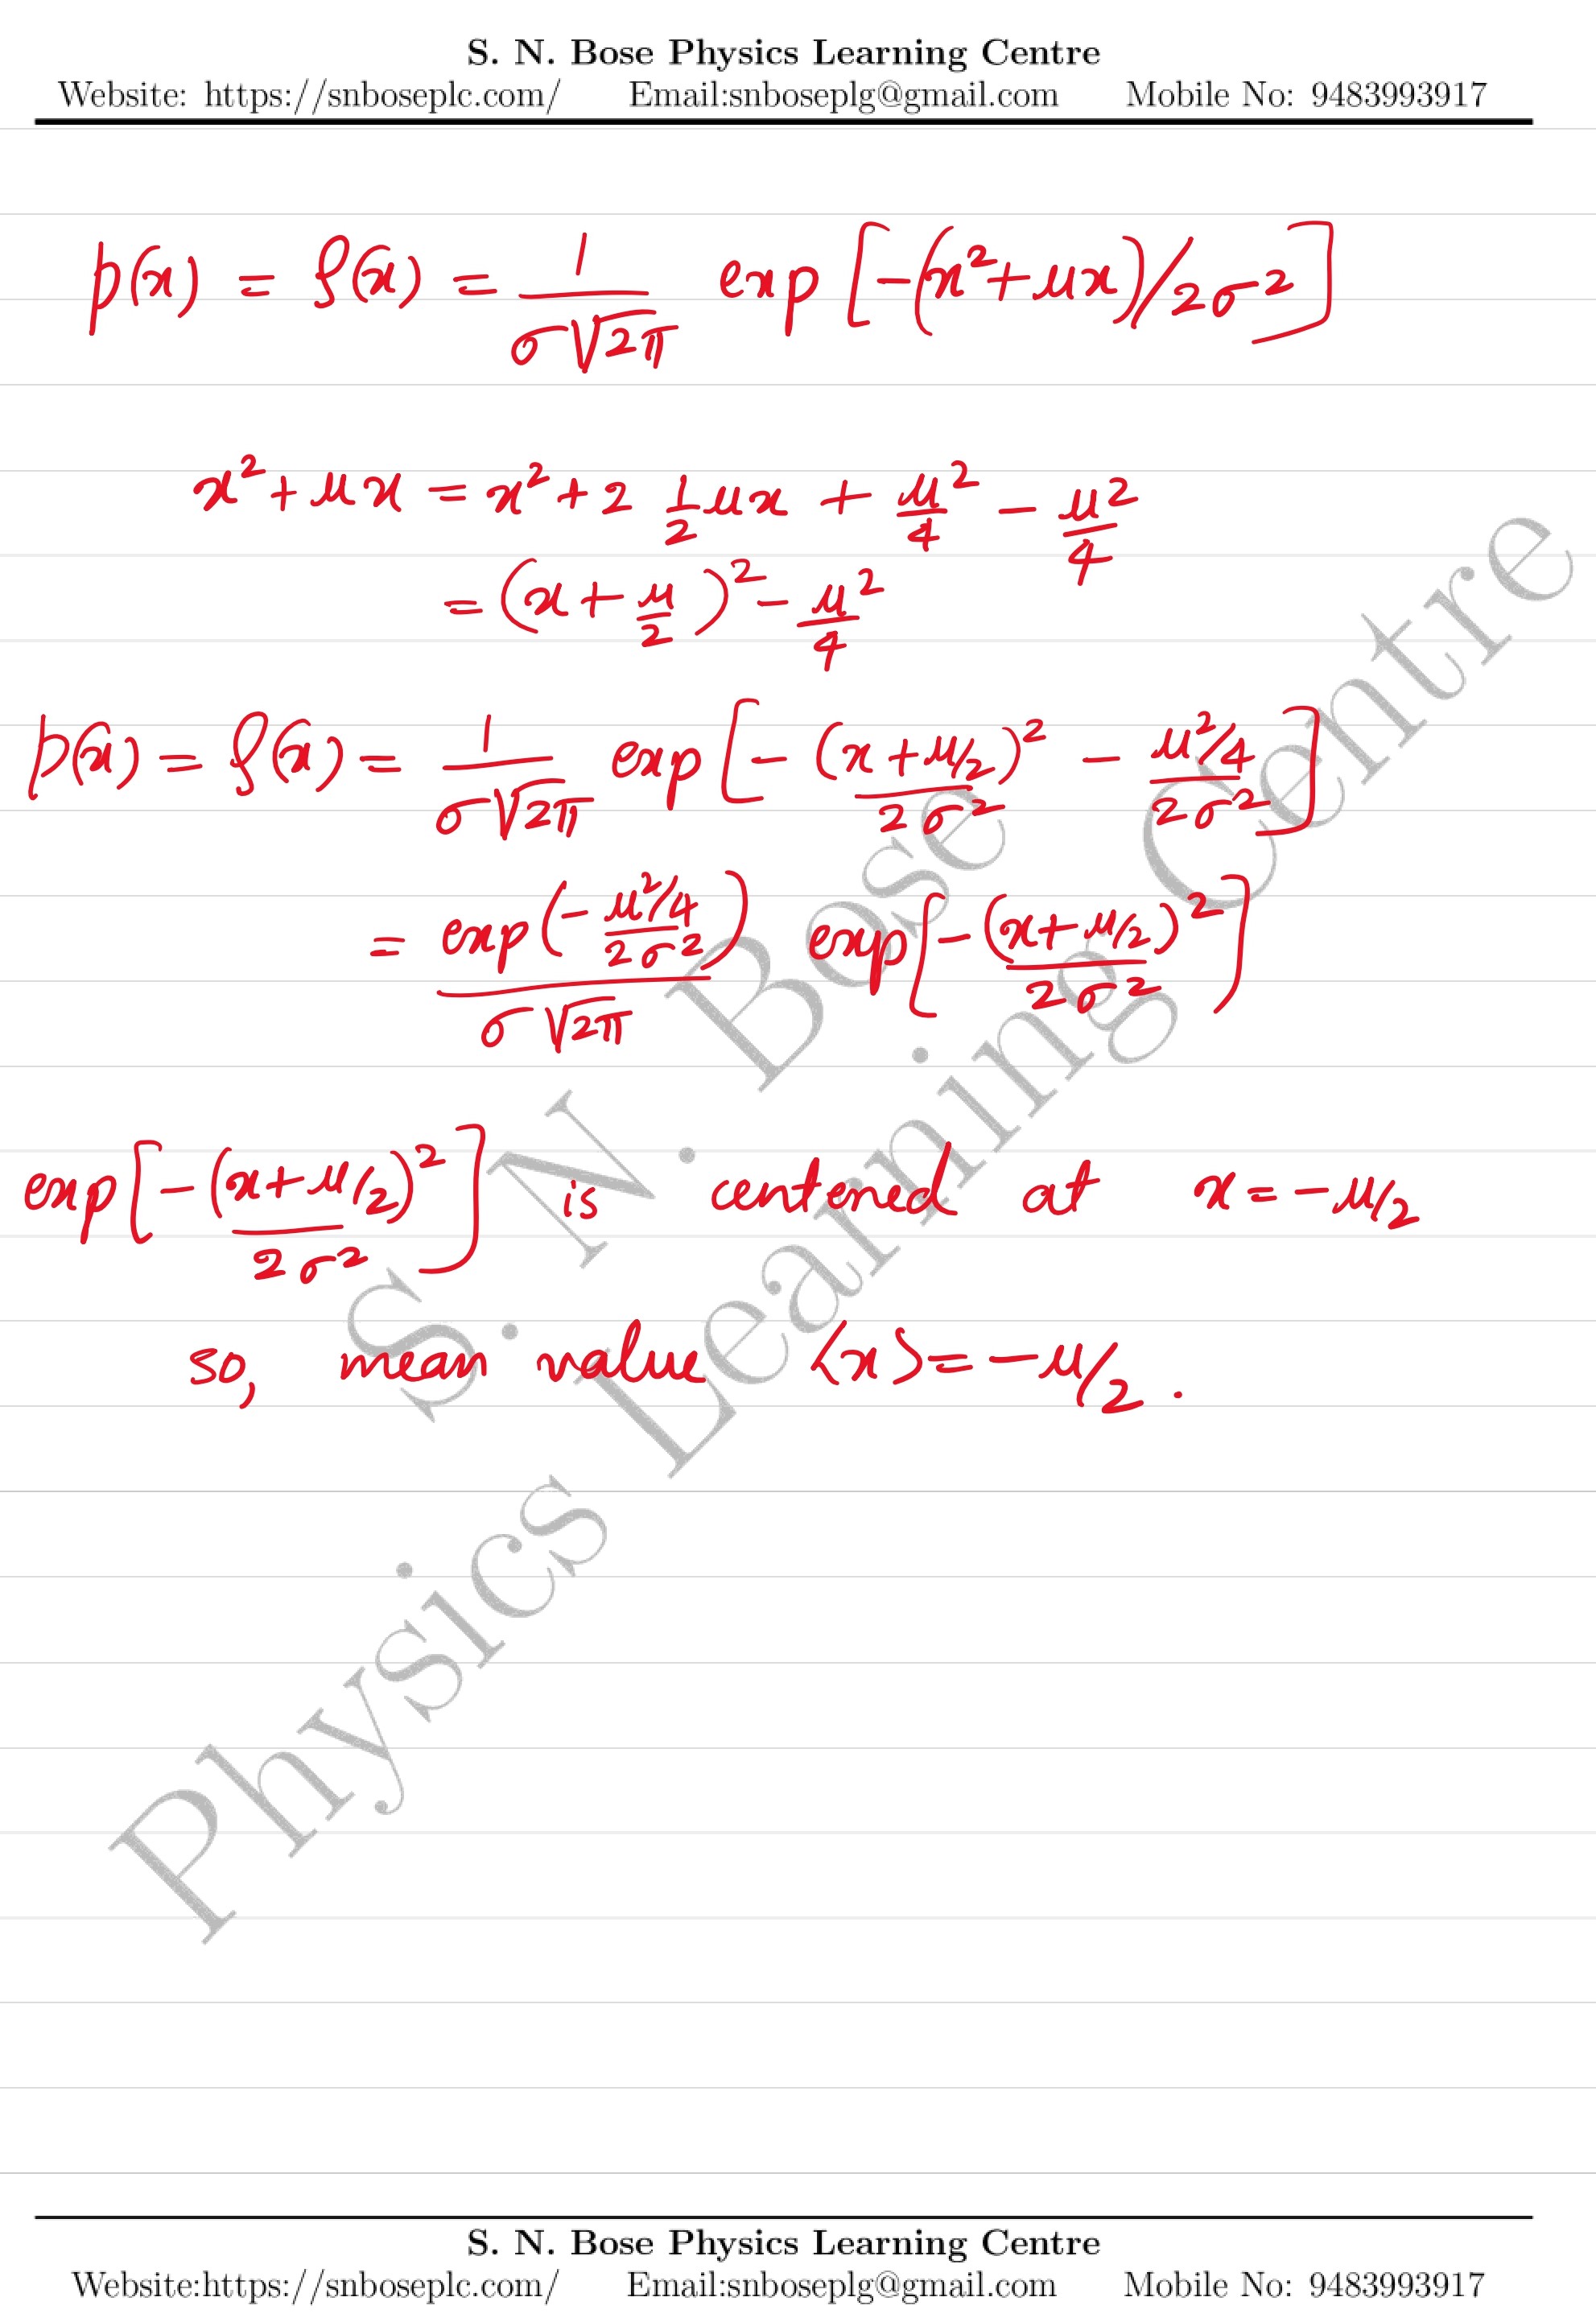 S. N. Bose Physics Learning Centre
Website: https://snboseplc.com/ Email:snboseplg@gmail.com Mobile No: 9483993917
p(x) = ρ(x) = 1/(σ√2π) exp[-(x²+μx)/2σ²]
x²+μx = x²+2 1/2 μx + μ²/4 - μ²/4
= (x+μ/2)² - μ²/4
p(x) = ρ(x) = 1/(σ√2π) exp[-(x+μ/2)²/2σ² - (μ²/4)/2σ²]
= exp(-(μ²/4)/2σ²)/(σ√2π) exp[-(x+μ/2)²/2σ²]
exp[-(x+μ/2)²/2σ²] is centered at x=-μ/2
so, mean value ⟨x⟩=-μ/2.
S. N. Bose
Physics Learning Centre
S. N. Bose Physics Learning Centre
Website:https://snboseplc.com/ Email:snboseplg@gmail.com Mobile No: 9483993917